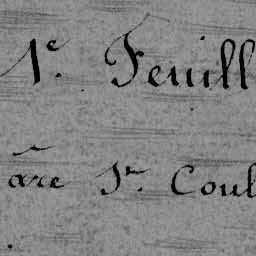 1e. Feuill
are Sr. Coul